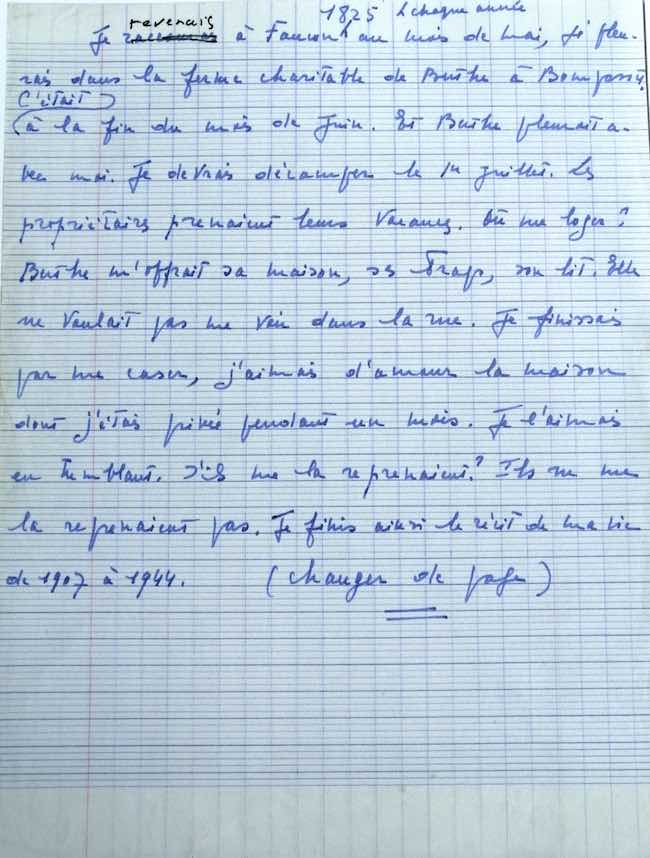 1825
revenais chaque année
Je à Faucon au mois de mai, je pleu-
rais dans la ferme charitable de Berthe à
C'était
à la fin du mois de Juin. Et Berthe pleurait a-
vec moi. Je devrais décamper le 1er Juillet. Les
propriétaires prenaient leurs vacances. Où me loger ?
Berthe m'offrait sa maison, ses draps, son lit. Elle
ne voulait pas me voir dans la rue. Je finissais
par me caser, j'aimais d'amour la maison
dont j'étais privée pendant un mois. Je l'aimais
en tremblant. S'ils me la reprenaient ? Ils ne me
la reprenaient pas. Je finis ainsi le récit de ma vie
de 1907 à 1944. (changer de page)